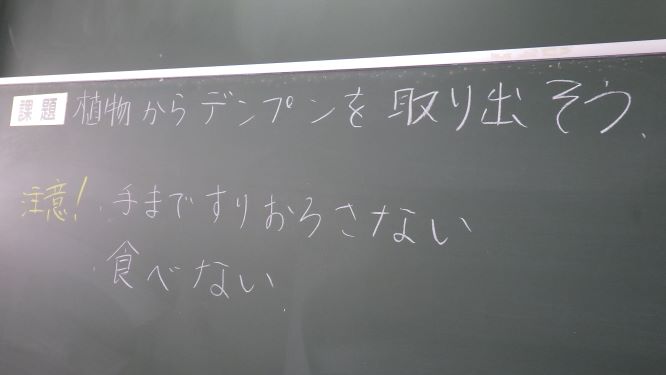 課題 植物からデンプンを取り出そう。
注意! ・手まですりおろさない
・食べない